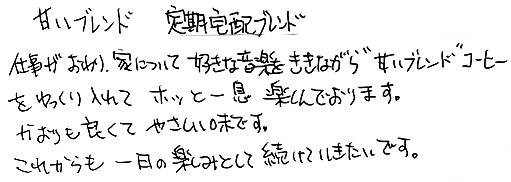 甘いブレンド 定期宅配ブレンド
仕事がおわり、家について好きな音楽をききながら"甘いブレンド"コーヒー
をゆっくり入れて ホッと一息 楽しんでおります。
かおりも良くて やさしい味です。
これからも 一日の楽しみとして続けていきたいです。